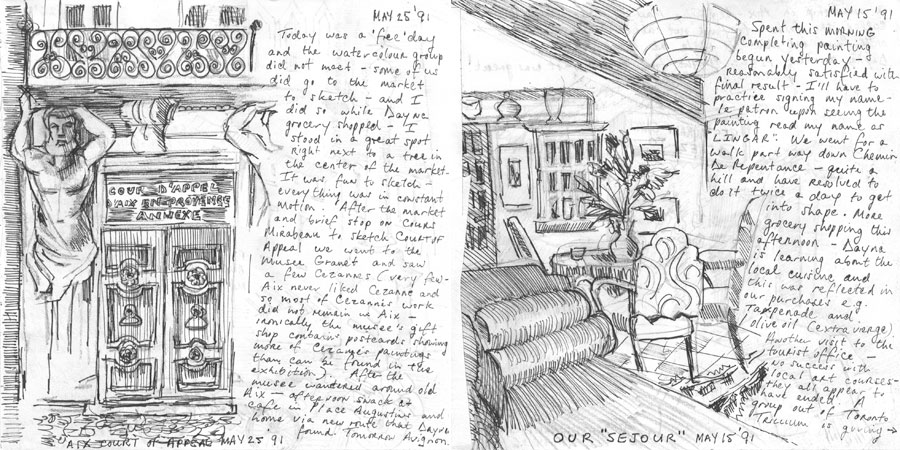 MAY 25 '91
Today was a 'free' day
and the watercolour group
did not meet - some of us
did go to the market
to sketch - and I
did so while Dayne
grocery shopped - I
stood in a great spot
right next to a tree in
the center of the market.
It was fun to sketch -
everything was in constant
motion. After the market
and brief stop on Cours
Mirabeau to sketch COURT OF
Appeal we went to the
Musee Granet and saw
a few Cezannes (very few -
Aix never liked Cezanne and
so most of Cezanne's work
did not remain in Aix -
ironically, the musee's gift
shop contains postcards showing
more of Cezanne's paintings
than can be found in the
exhibition). After the
musee wandered around old
Aix - afternoon snack at
cafe in Place Augustins and
home via new route that Dayne
found. Tomorrow Avignon.
COUR D'APPEL
D'AIX EN PROVENCE
ANNEXE
AIX COURT OF APPEAL MAY 25 91
MAY 15 '91
Spent this MORNING
completing painting
begun yesterday -
reasonably satisfied with
final result - I'll have to
practice signing my name -
le patron upon seeing the
painting read my name as
"LINGAR". We went for a
walk part way down Chemin
de Repentance - quite a
hill and have resolved to
do it twice a day to get
into shape. More
grocery shopping this
afternoon - Dayne
is learning about the
local cuisine and
this was reflected in
our purchases e.g.
Tampenade and
olive oil (extra vierge)
Another visit to the
tourist office -
no success with
local art courses -
they all appear to
have ended. A
group out of Toronto
is giving →
OUR "SEJOUR" MAY 15 '91